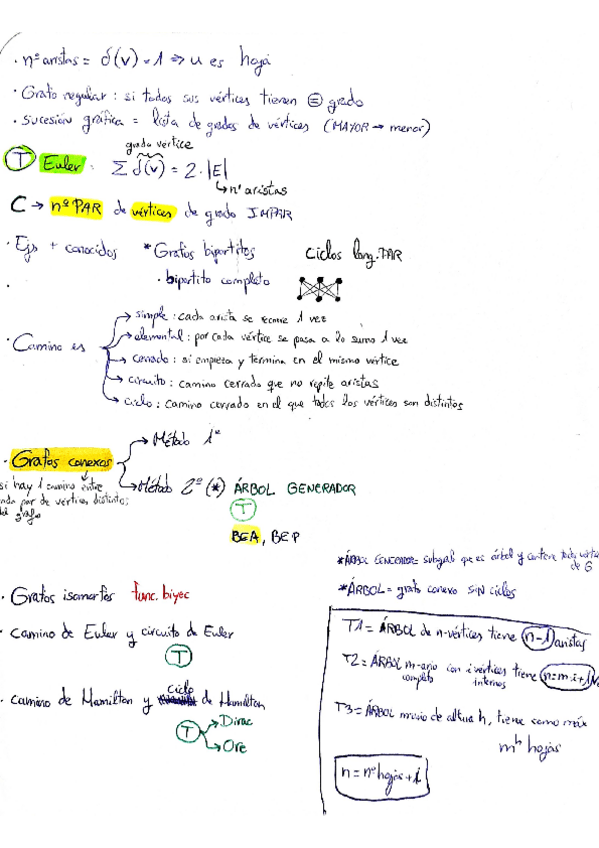 · nº aristas = δ(v) = 1 ⇒ u es hoja
· Grafo regular : si todos sus vértices tienen = grado
· Sucesión gráfica = lista de grados de vértices (MAYOR → menor)
grado vertice
T Euler: Σ δ(v) = 2·|E|
↳ nº aristas
C → nº PAR de vértices de grado IMPAR
· Ejs + conocidos * Grafos bipartitos Ciclos long. PAR
· bipartito completo
· Camino es
→ simple : cada arista se recorre 1 vez
→ elemental : por cada vértice se pasa a lo sumo 1 vez
→ cerrado : si empieza y termina en el mismo vértice
→ circuito : camino cerrado que no repite aristas
→ ciclo : camino cerrado en el que todos los vértices son distintos
· Grafos conexos → Método 1º
si hay 1 camino entre
cada par de vértices distintos
del grafo
→ Método 2º (*) ÁRBOL GENERADOR
T
BEA, BEP
* ÁRBOL GENERADOR = subgrafo que es árbol y contiene todos
de G
* ÁRBOL = grafo conexo SIN ciclos
· Grafos isomorfos func. biyec
· Camino de Euler y circuito de Euler
T
· Camino de Hamilton y ciclo de Hamilton
T → Dirac
→ Ore
T1 = ÁRBOL de n-vértices tiene n-1 aristas
T2 = ÁRBOL m-ario con i vértices tiene n=m·i+1
completo internos
T3 = ÁRBOL m-ario de altura h, tiene como máx
m^h hojas
n = nº hojas + i